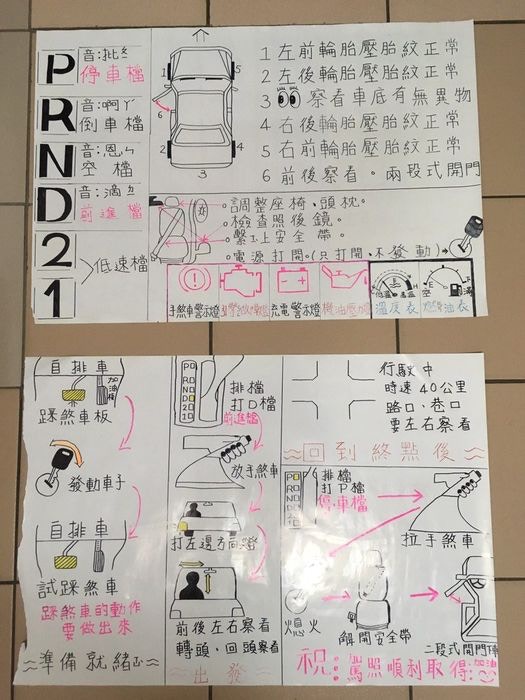 P 音:批ㄆ
停車檔
R 音:啊ㄚ
倒車檔
N 音:恩ㄣ
空檔
D 音:滴ㄉ
前進檔
2
1
低速檔
1
2
3
4
5
6
1 左前輪胎壓胎紋正常
2 左後輪胎壓胎紋正常
3 察看車底有無異物
4 右後輪胎壓胎紋正常
5 右前輪胎壓胎紋正常
6 前後察看。兩段式開門
。調整座椅、頭枕。
。檢查照後鏡。
。繫上安全帶。
。電源打開(只打開、不發動)
手煞車警示燈
充電警示燈
機油壓力燈
低溫 高溫
溫度表
E 空 F 滿
燃油表
自排車
加油板
踩煞車板
發動車子
自排車
試踩煞車
踩煞車的動作
要做出來
準備就緒
P
R
N
D
2
1
排檔
打D檔
前進檔
放手煞車
打左邊方向燈
前後左右察看
轉頭、回頭察看
出發
行駛中
時速40公里
路口、巷口
要左右察看
回到終點後
P
R
N
D
2
1
排檔
打P檔
停車檔
拉手煞車
熄火
解開安全帶
二段式開門
祝:駕照順利取得
加油